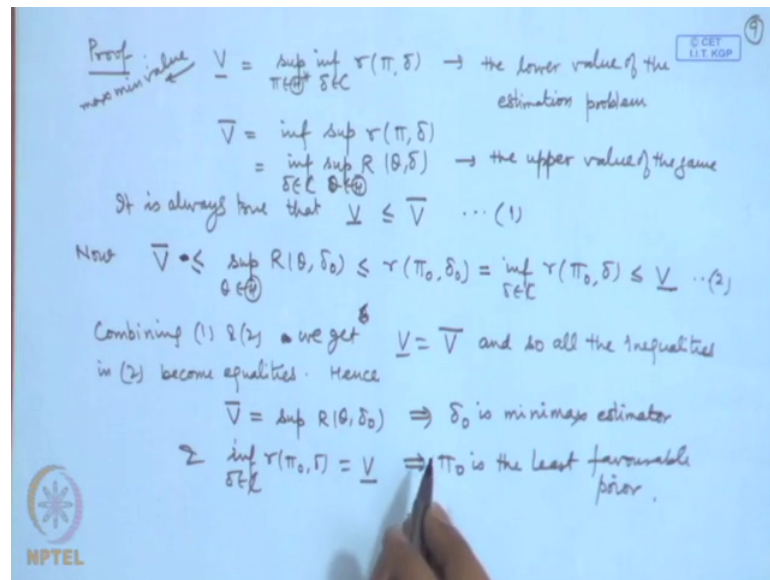 9
© CET
I.I.T. KGP
Proof
maxmin value
V̲ = sup_{π∈Θ*} inf_{δ∈C} r(π, δ) → the lower value of the
estimation problem
V̄ = inf sup r(π, δ)
= inf_{δ∈C} sup_{θ∈Θ} R(θ, δ) → the upper value of the game
It is always true that V̲ ≤ V̄ ...(1)
Now V̄ ≤ sup_{θ∈Θ} R(θ, δ₀) ≤ r(π₀, δ₀) = inf_{δ∈C} r(π₀, δ) ≤ V̲ ..(2)
Combining (1) & (2) we get V̲ = V̄ and so all the inequalities
in (2) become equalities. Hence
V̄ = sup R(θ, δ₀) ⇒ δ₀ is minimax estimator
& inf_{δ∈C} r(π₀, δ) = V̲ ⇒ π₀ is the least favourable
prior.
NPTEL